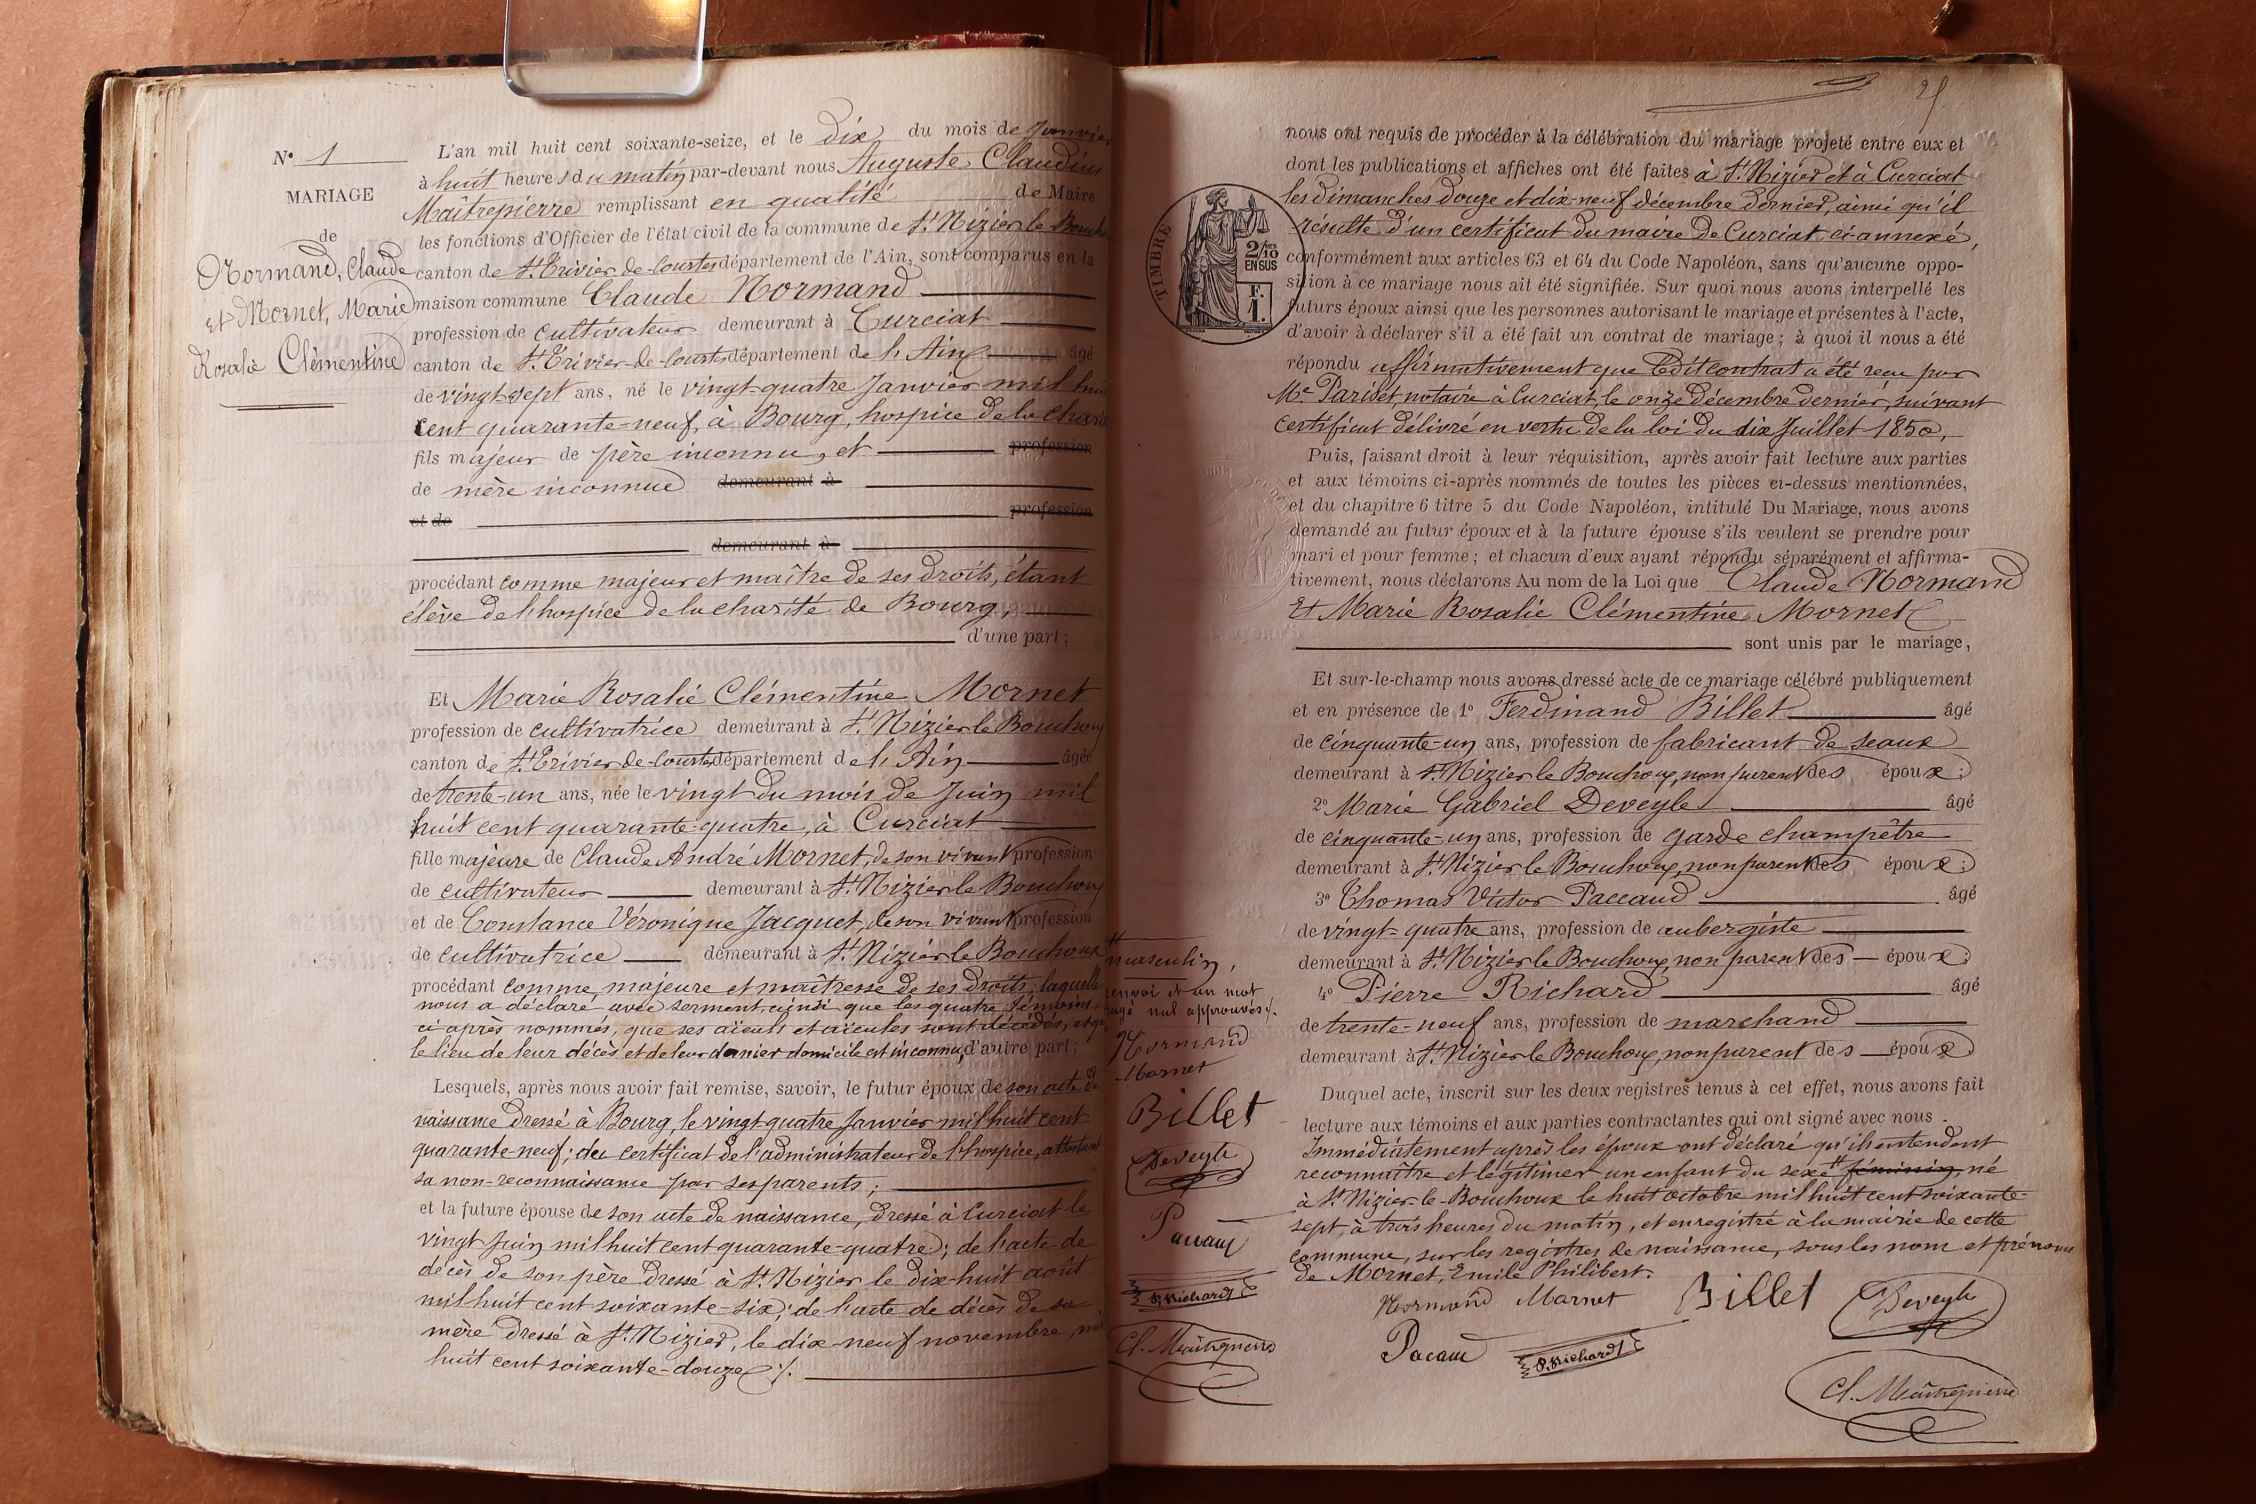 N° 1
MARIAGE
de
Normand, Claude
et Mornet, Marie
Rosalie Clémentine
L'an mil huit cent soixante-seize, et le dix du mois de Janvier
à huit heures du matin par-devant nous Auguste Claudius
Maîtrepierre remplissant en qualité de Maire
les fonctions d'Officier de l'état civil de la commune de St Nizier le Bouchoux
canton de St Trivier-de-Courtes département de l'Ain, sont comparus en la
maison commune Claude Normand
profession de cultivateur demeurant à Curciat
canton de St Trivier-de-Courtes département de l'Ain âgé
de vingt-sept ans, né le vingt-quatre Janvier mil huit
cent quarante-neuf, à Bourg, hospice de la charité
fils majeur de père inconnu, et profession
de mère inconnue demeurant à
et de profession
demeurant à
procédant comme majeur et maître de ses droits, étant
élève de l'hospice de la charité de Bourg,
d'une part;
Et Marie Rosalie Clémentine Mornet
profession de cultivatrice demeurant à St Nizier le Bouchoux
canton de St Trivier-de-Courtes département de l'Ain âgée
de trente-un ans, née le vingt du mois de Juin mil
huit cent quarante-quatre, à Curciat
fille majeure de Claude André Mornet, de son vivant profession
de cultivateur demeurant à St Nizier le Bouchoux
et de Constance Véronique Jacquet, de son vivant profession
de cultivatrice demeurant à St Nizier le Bouchoux
procédant comme majeure et maîtresse de ses droits, laquelle
nous a déclaré avec serment, ainsi que les quatre témoins
ci après nommés, que ses aïeuls et aïeules sont décédés, et que
le lieu de leur décès et de leur dernier domicile est inconnu, d'autre part;
Lesquels, après nous avoir fait remise, savoir, le futur époux de son acte de
naissance dressé à Bourg, le vingt-quatre Janvier mil huit cent
quarante-neuf; du certificat de l'administrateur de l'hospice, attestant
sa non-reconnaissance par ses parents;
et la future épouse de son acte de naissance, dressé à Curciat le
vingt Juin mil huit cent quarante-quatre; de l'acte de
décès de son père dressé à St Nizier le dix-huit août
mil huit cent soixante-six; de l'acte de décès de sa
mère dressé à St Nizier, le dix-neuf novembre mil
huit cent soixante-douze ./.
25
TIMBRE
2/10
EN SUS
F.
1.
nous ont requis de procéder à la célébration du mariage projeté entre eux et
dont les publications et affiches ont été faites à St Nizier et à Curciat
les dimanches douze et dix-neuf décembre dernier, ainsi qu'il
résulte d'un certificat du maire de Curciat ci-annexé,
conformément aux articles 63 et 64 du Code Napoléon, sans qu'aucune oppo-
sition à ce mariage nous ait été signifiée. Sur quoi nous avons interpellé les
futurs époux ainsi que les personnes autorisant le mariage et présentes à l'acte,
d'avoir à déclarer s'il a été fait un contrat de mariage; à quoi il nous a été
répondu affirmativement que ledit contrat a été reçu par
Me Pariset, notaire à Curciat, le onze décembre dernier, suivant
certificat délivré en vertu de la loi du dix Juillet 1850,
Puis, faisant droit à leur réquisition, après avoir fait lecture aux parties
et aux témoins ci-après nommés de toutes les pièces ci-dessus mentionnées,
et du chapitre 6 titre 5 du Code Napoléon, intitulé Du Mariage, nous avons
demandé au futur époux et à la future épouse s'ils veulent se prendre pour
mari et pour femme; et chacun d'eux ayant répondu séparément et affirma-
tivement, nous déclarons Au nom de la Loi que Claude Normand
Et Marie Rosalie Clémentine Mornet
sont unis par le mariage,
Et sur-le-champ nous avons dressé acte de ce mariage célébré publiquement
et en présence de 1° Ferdinand Billet âgé
de cinquante-un ans, profession de fabricant de seaux
demeurant à St Nizier le Bouchoux, non parent des époux;
2° Marie Gabriel Deveyle âgé
de cinquante-un ans, profession de garde champêtre
demeurant à St Nizier le Bouchoux, non parent des époux;
3° Thomas Victor Paccaud âgé
de vingt-quatre ans, profession de aubergiste
demeurant à St Nizier le Bouchoux, non parent des époux;
4° Pierre Richard âgé
de trente-neuf ans, profession de marchand
demeurant à St Nizier le Bouchoux, non parent des époux
Duquel acte, inscrit sur les deux registres tenus à cet effet, nous avons fait
lecture aux témoins et aux parties contractantes qui ont signé avec nous.
Immédiatement après les époux ont déclaré qu'ils entendent
reconnaître et légitimer un enfant du sexe # féminin, né
à St Nizier-le-Bouchoux le huit octobre mil huit cent soixante-
sept, à trois heures du matin, et enregistré à la mairie de cette
commune, sur les registres de naissance, sous les nom et prénoms
de Mornet, Emile Philibert.
Normand Mornet Billet Deveyle
Pacaud P. Richard
Cl. Maîtrepierre
# masculin,
renvoi et un mot
rayé nul approuvés ./.
Normand
Mornet
Billet
Deveyle
Pacaud
P. Richard
Cl. Maîtrepierre